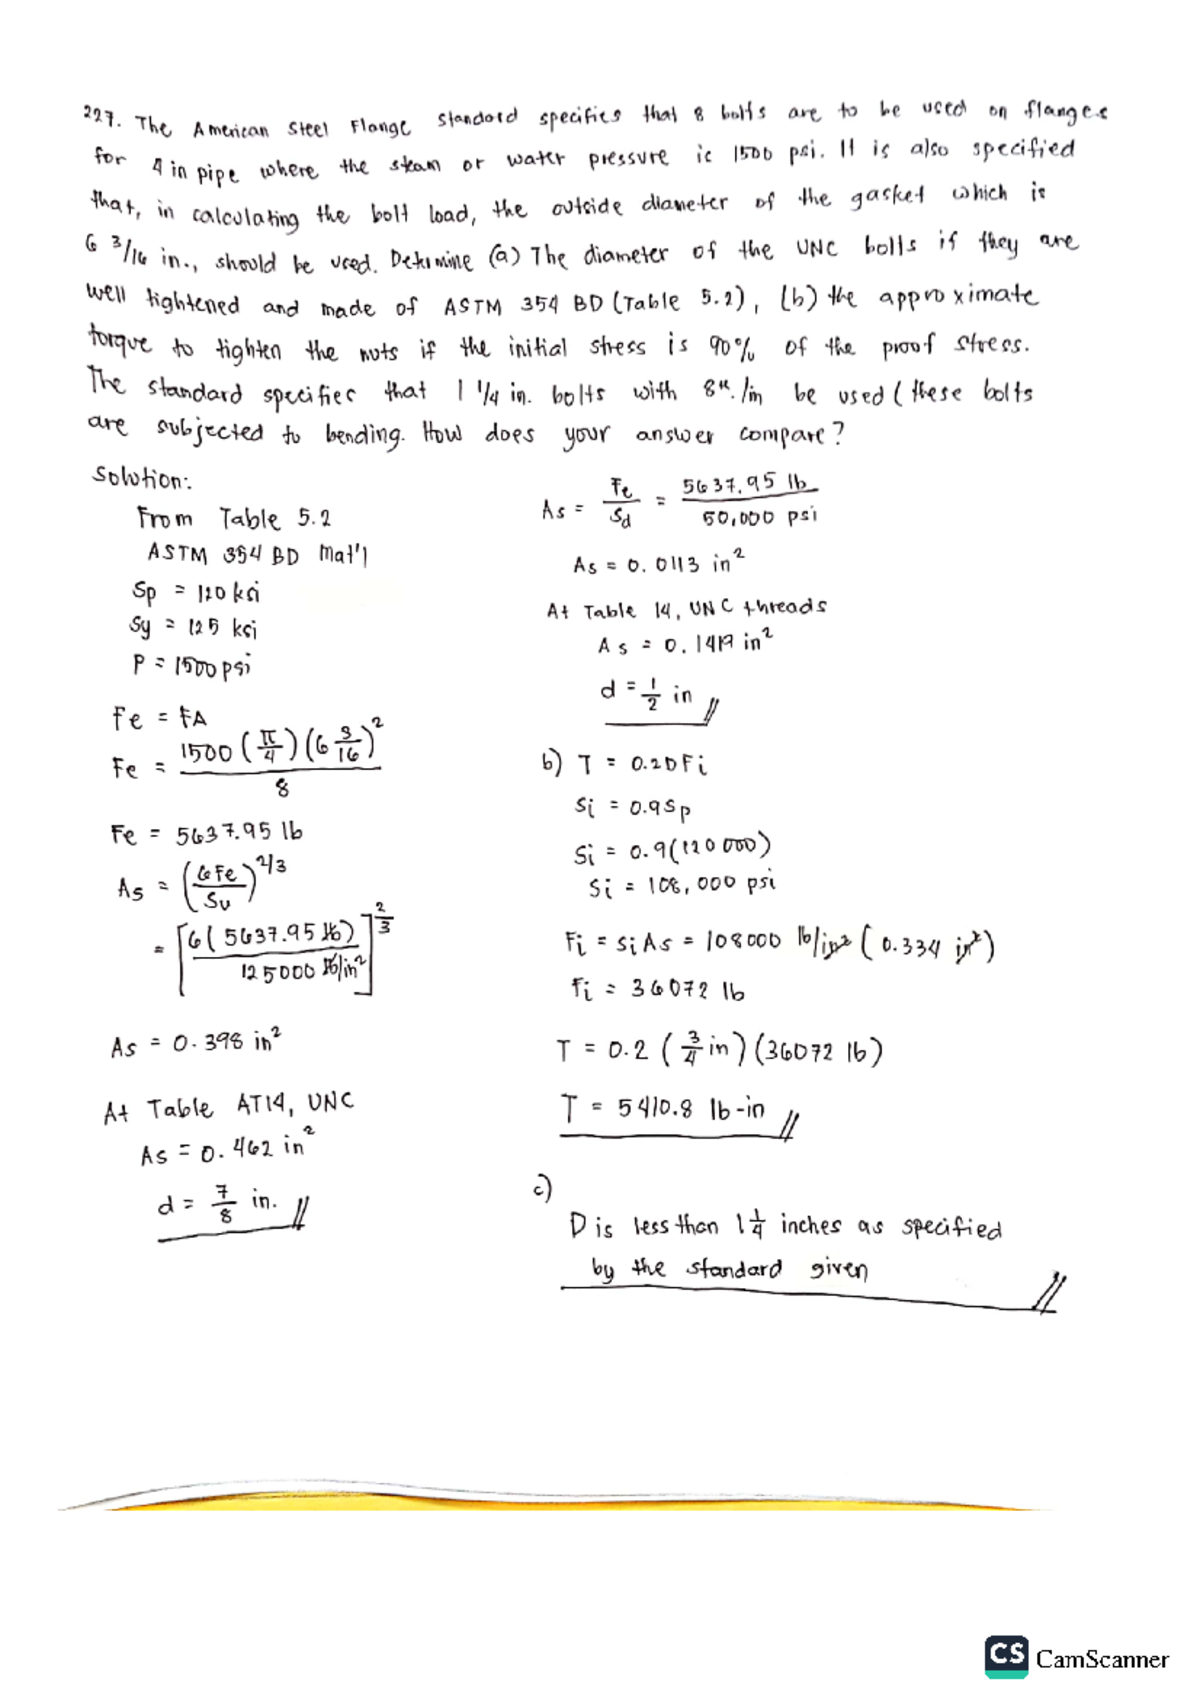 227. The American Steel Flange Standard specifies that 8 bolts are to be used on flanges
for 4 in pipe where the steam or water pressure is 1500 psi. It is also specified
that, in calculating the bolt load, the outside diameter of the gasket which is
6 3/16 in., should be used. Determine (a) The diameter of the UNC bolls if they are
well tightened and made of ASTM 354 BD (Table 5.2), (b) the approximate
torque to tighten the nuts if the initial stress is 90% of the proof stress.
The standard specifies that 1 1/4 in. bolts with 8th./in be used (these bolts
are subjected to bending. How does your answer compare?
Solution:
From Table 5.2
ASTM 354 BD Mat'l
Sp = 120 ksi
Sy = 125 ksi
P = 1500 psi
Fe = FA
Fe = 1500 (π/4) (6 3/16)^2 / 8
Fe = 5637.95 lb
As = (6Fe / Su)^2/3
= [6 (5637.95 lb) / 125000 lb/in^2]^2/3
As = 0.398 in^2
At Table AT14, UNC
As = 0.462 in^2
d = 7/8 in. //
As = Fe / Sd = 5637.95 lb / 50,000 psi
As = 0.0113 in^2
At Table 14, UNC threads
As = 0.1419 in^2
d = 1/2 in //
b) T = 0.2DFi
Si = 0.9Sp
Si = 0.9(120 000)
Si = 108,000 psi
Fi = siAs = 108000 lb/in^2 (0.334 in^2)
Fi = 36072 lb
T = 0.2 (3/4 in) (36072 lb)
T = 5410.8 lb-in //
c)
D is less than 1 1/4 inches as specified
by the standard given //
CS CamScanner